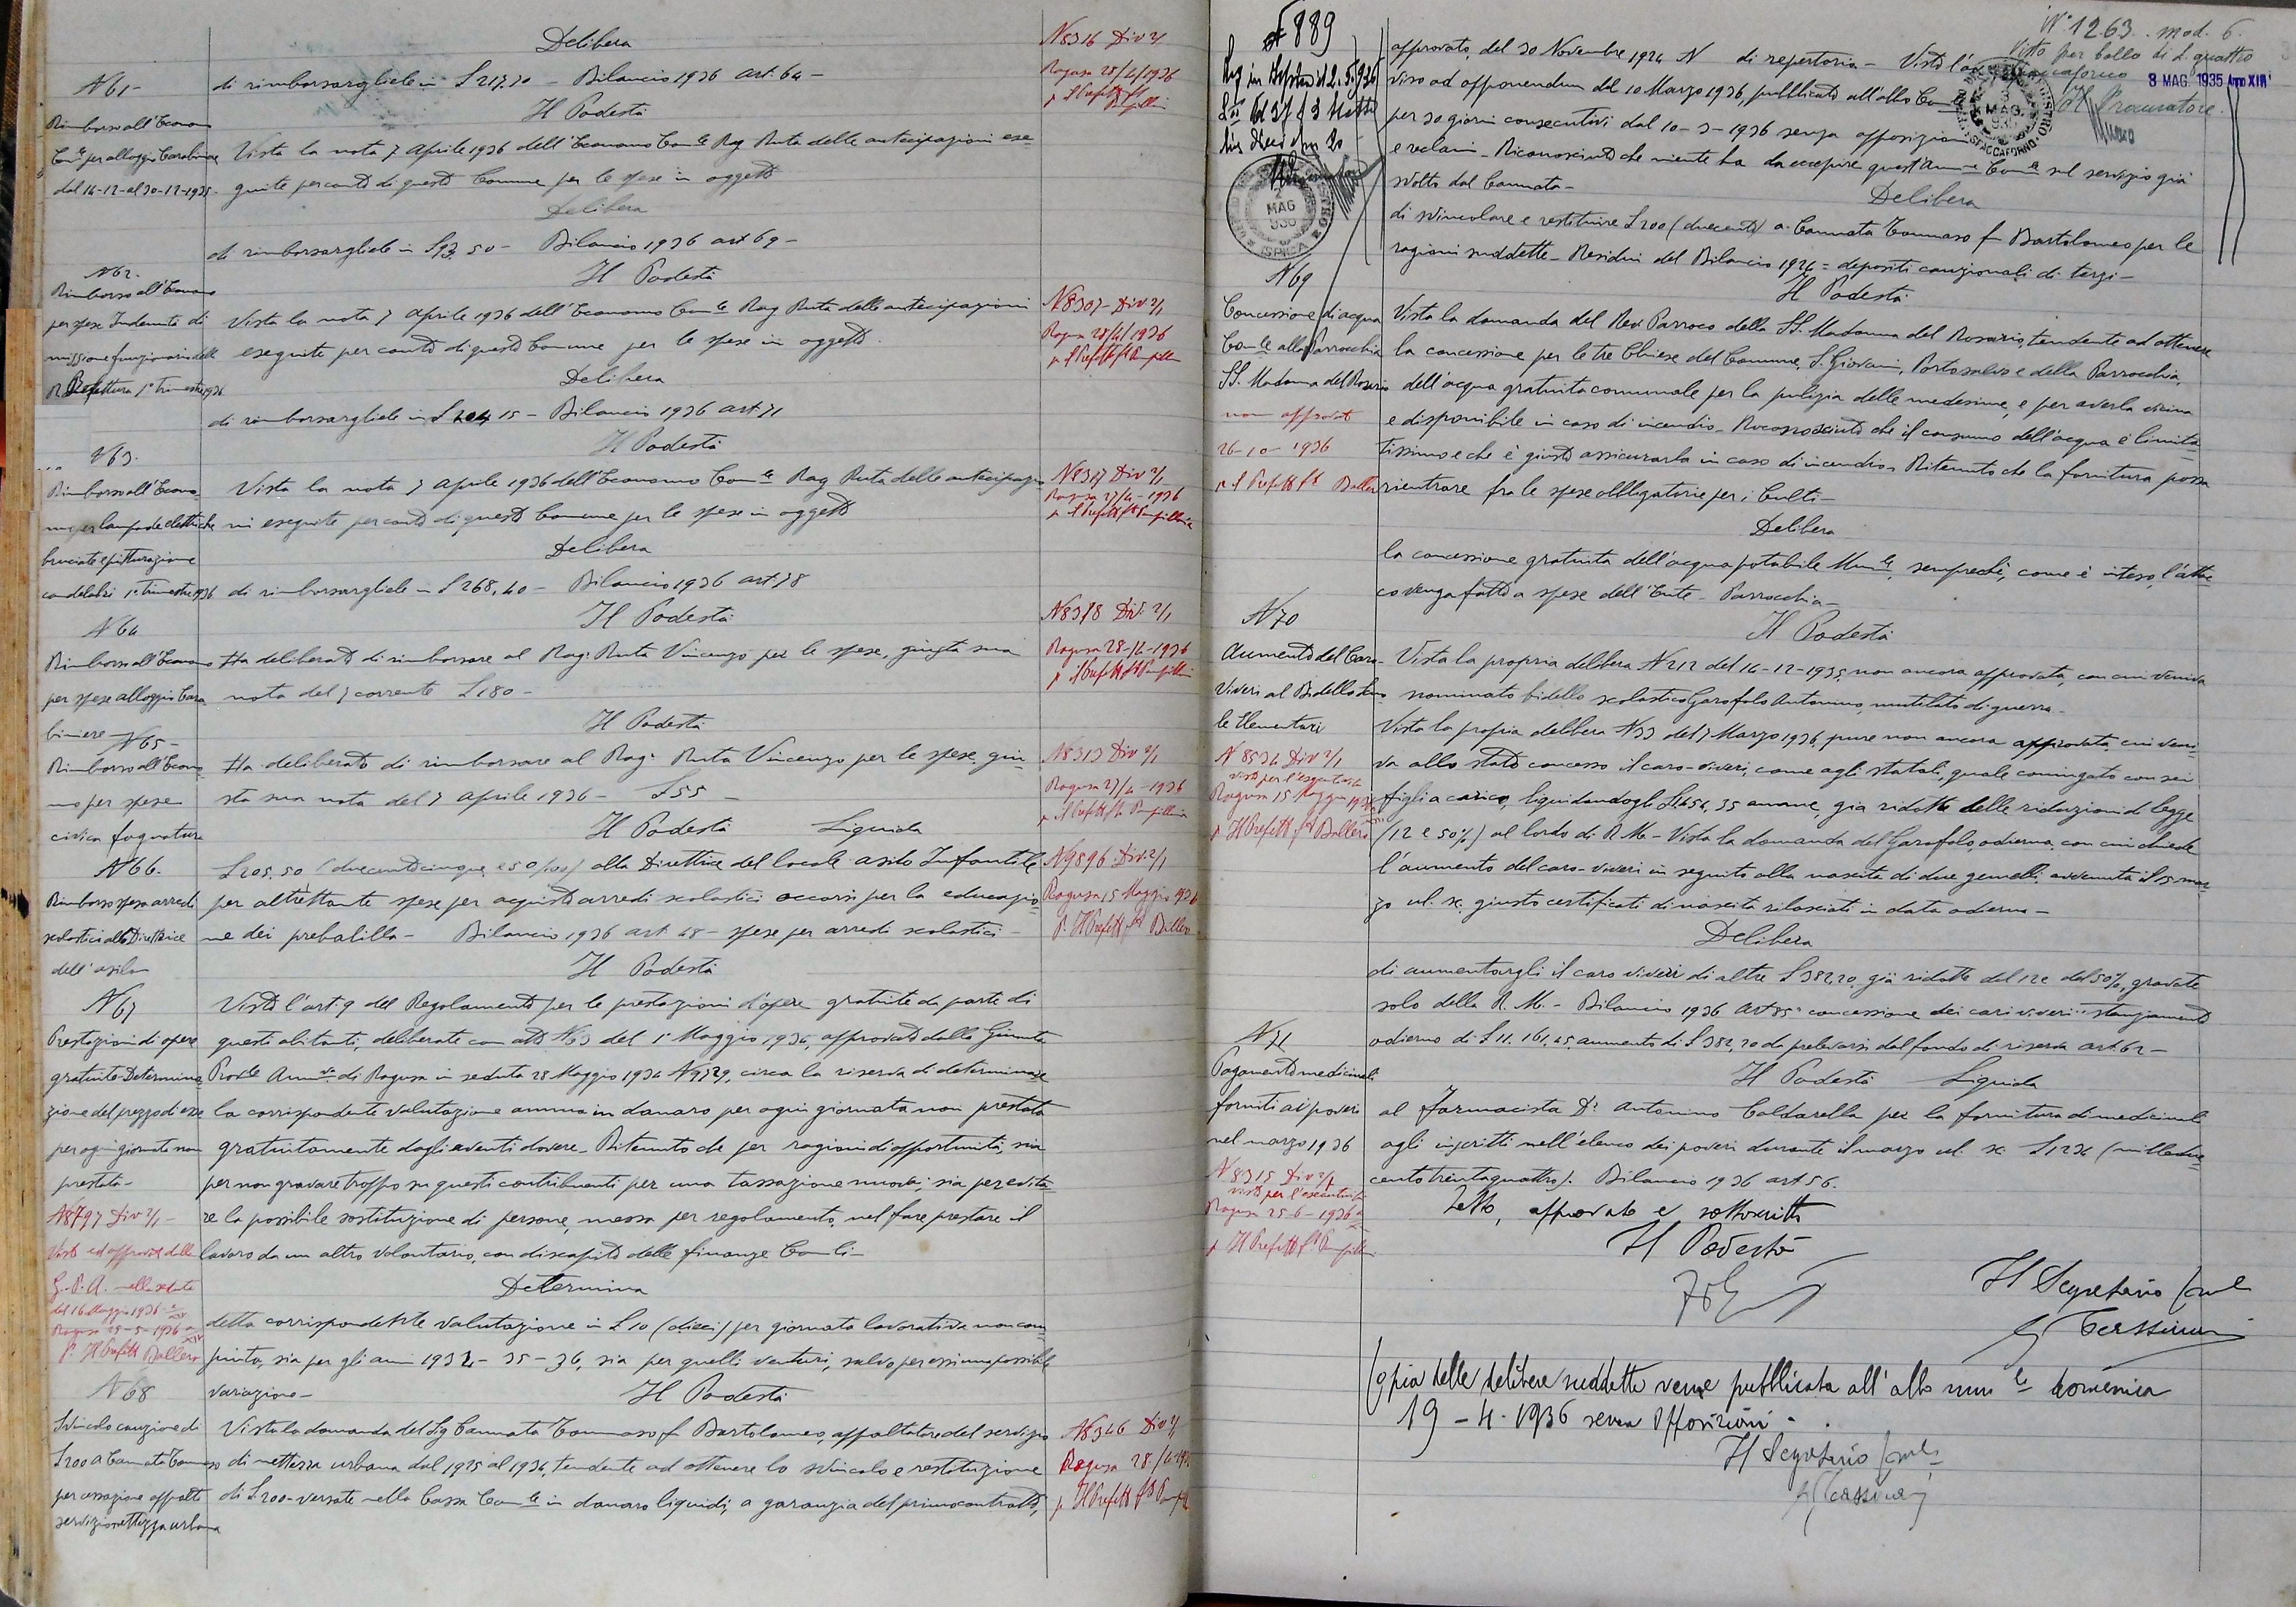 Delibera
di rimborsargliele in £ 217,70 - Bilancio 1936 art. 64 -
N 61 -
Rimborso all'Econom
Com.le per alloggio Carabiniere
dal 14-12 al 30-12-1935.
Il Podestà
Vista la nota 7 aprile 1936 dell'Economo Com.le Rag Ruta delle anticipazioni ese-
guite per conto di questo Comune per le spese in oggetto
Delibera
di rimborsargliele in £ 93,50 - Bilancio 1936 art 69 -
N 8316 Div 2/1
Ragusa 28/4/1936
p Il Prefetto
N 62.
Rimborso all'Econom
per spese Indennità di
missione funzionari della
R. Prefettura 1° trimestre 1936
Il Podestà
Vista la nota 7 aprile 1936 dell'Economo Com.le Rag Ruta delle anticipazioni
eseguite per conto di questo Comune per le spese in oggetto.
Delibera
di rimborsargliele in £ 204 15 - Bilancio 1936 art 71
N 8307 - Div 2/1
Ragusa 28/4/1936
p Il Prefetto
N 63.
Rimborso all'Econo-
mo per lampade elettriche
bruciate e pitturazione
candelabri 1° trimestre 1936
Il Podestà
Vista la nota 7 aprile 1936 dell'Economo Com.le Rag Ruta delle anticipazio-
ni eseguite per conto di questo Comune per le spese in oggetto
Delibera
di rimborsargliele in £ 268,40 - Bilancio 1936 art. 78
N 8317 Div 2/1
Ragusa 27/4 - 1936
p Il Prefetto
N 64
Rimborso all'Econom
per spese alloggio Cara
biniere
Il Podestà
Ha deliberato di rimborsare al Rag: Ruta Vincenzo per le spese, giusta sua
nota del 7 corrente £ 180 -
N 8318 Div: 2/1
Ragusa 28-4-1936
p il Prefetto
N 65 -
Rimborso all'Econo-
mo per spese
civica fognatura
Il Podestà
Ha deliberato di rimborsare al Rag: Ruta Vincenzo per le spese, giu-
sta sua nota del 7 aprile 1936 - £ 55 -
N 8313 Div 2/1
Ragusa 27/4 - 1936
p Il Prefetto
N 66.
Rimborso spesa arredi
scolastici alla Direttrice
dell'asilo
Il Podestà Liquida
£ 205,50 (duecentocinque e 50/100) alla Direttrice del locale asilo Infantile
per altrettante spese per acquisto arredi scolastici occorsi per la educazio-
ne dei prebalilla - Bilancio 1936 art 48 - spese per arredi scolastici -
N 9896 Div. 2/1
Ragusa 15 Maggio 1936
P. Il Prefetto Ballero
N 67
Prestazioni di opere
gratuite - Determina-
zione del prezzo di esse
per ogni giornata non
prestata -
N 8797 Div 2/1 -
Visto ed approvato dalla
G. P. A. nella seduta
del 16 Maggio 1936
Ragusa 25-5-1936
P. Il Prefetto Ballero
Il Podestà
Visto l'art. 9 del Regolamento per le prestazioni d'opere gratuite da parte di
questi abitanti, deliberate con atto N 63 del 1° Maggio 1934, approvato dalla Giunta
Prov.le Amm.va di Ragusa in seduta 28 Maggio 1934 N 9729, circa la riserva di determinare
la corrispondente valutazione annua in danaro per ogni giornata non prestata
gratuitamente dagli aventi dovere - Ritenuto che per ragioni di opportunità, sia
per non gravare troppo su questi contribuenti per una tassazione nuova; sia per evita-
re la possibile sostituzione di persone, messa per regolamento, nel fare prestare il
lavoro da un altro volontario, con discapito delle finanze Com.li -
Determina
detta corrispondente valutazione in £ 10 (dieci) per giornata lavorativa non com-
piuta, sia per gli anni 1934 - 35 - 36, sia per quelli venturi, salvo per essi una possibile
variazione -
N 68
Svincolo cauzione di
£ 200 a Cannata Tommaso
per cessazione appalto
servizio nettezza urbana
Il Podestà
Vista la domanda del Sig Cannata Tommaso fu Bartolomeo, appaltatore del servizio
di nettezza urbana dal 1925 al 1934, tendente ad ottenere lo svincolo e restituzione
di £ 200 - versate nella Cassa Com.le in danaro liquidi, a garanzia del primo contratto,
N 8346 Div 2/1
Ragusa 28/4-1936
p Il Prefetto
N 889
N° 1263. mod. 6.
Visto per bollo di L. quattro
3 MAG. 1935 Anno XIII
Il Procuratore.
MAG
ISPICA
approvato, del 30 Novembre 1924 N di repertorio - Visto l'av-
viso ad opponendum del 10 Marzo 1936, pubblicato all'albo Com.le
per 30 giorni consecutivi dal 10-3-1936 senza opposizioni
e reclami - Riconosciuto che niente ha da eccepire quest'Amm.ne Com.le sul servizio già
svolto dal Cannata -
Delibera
di svincolare e restituire £ 200 (duecento) a Cannata Tommaso fu Bartolomeo per le
ragioni suddette - Residui del Bilancio 1924 = depositi cauzionali di terzi -
N 69
Concessione di acqua
Com.le alla Parrocchia
SS. Madonna del Rosario
non approvata
26-10-1936
p Il Prefetto Ballero
Il Podestà
Vista la domanda del Rev. Parroco della SS. Madonna del Rosario, tendente ad ottenere
la concessione per le tre Chiese del Comune, S. Giovanni, Portosalvo e della Parrocchia,
dell'acqua gratuita comunale per la pulizia delle medesime, e per averla vicina
e disponibile in caso di incendio - Riconosciuto che il consumo dell'acqua è limita-
tissimo e che è giusto assicurarla in caso di incendio - Ritenuto che la fornitura possa
rientrare fra le spese obbligatorie per i Culti -
Delibera
la concessione gratuita dell'acqua potabile Mun.le, semprechè, come è inteso, l'attac-
co venga fatto a spese dell'Ente - Parrocchia -
N 70
Aumento del Caro-
Viveri al Bidello Scuo
le Elementari
N 8534 Div 2/1
visto per l'esecutività
Ragusa 15 Maggio 1936
p Il Prefetto Ballero
Il Podestà
Vista la propria delibera N 212 del 14-12-1935, non ancora approvata, con cui veniva
nominato bidello scolastico Garofolo Antonino, mutilato di guerra -
Vista la propria delibera N 33 del 7 Marzo 1936, pure non ancora approvata, cui veni-
va allo stato concesso il caro-viveri, come agli statali, quale coniugato con sei
figli a carico, liquidandogli £ 1454,35 annue, già ridotte delle riduzioni di legge
(12 e 50%) al lordo di R. M. - Vista la domanda del Garofolo, odierna, con cui chiede
l'aumento del caro-viveri in seguito alla nascita di due gemelli, avvenuta il 15 mar-
zo ul. sc. giusto certificati di nascita rilasciati in data odierna -
Delibera
di aumentargli il caro viveri di altre £ 382,20, già ridotte del 12 e del 50%, gravate
solo della R. M. - Bilancio 1936 art 35 "concessione dei cari viveri" stanziamento
odierno di £ 11.161,45, aumento di £ 382,20 da prelevarsi dal fondo di riserva art. 62 -
N 71
Pagamento medicinali
forniti ai poveri
nel marzo 1936
N 8315 Div 2/1
visto per l'esecutività
Ragusa 25-6-1936
p Il Prefetto
Il Podestà Liquida
al Farmacista Dr. Antonino Caldarella per la fornitura di medicinali
agli inscritti nell'elenco dei poveri durante il marzo ul. sc. £ 1234 (milledue-
centotrentaquattro). Bilancio 1936 art 56.
Letto, approvato e sottoscritto
Il Podestà
Il Segretario Com.le
Copia delle delibere suddette venne pubblicata all'albo mun.le domenica
19-4-1936 senza opposizioni -
Il Segretario Com.le